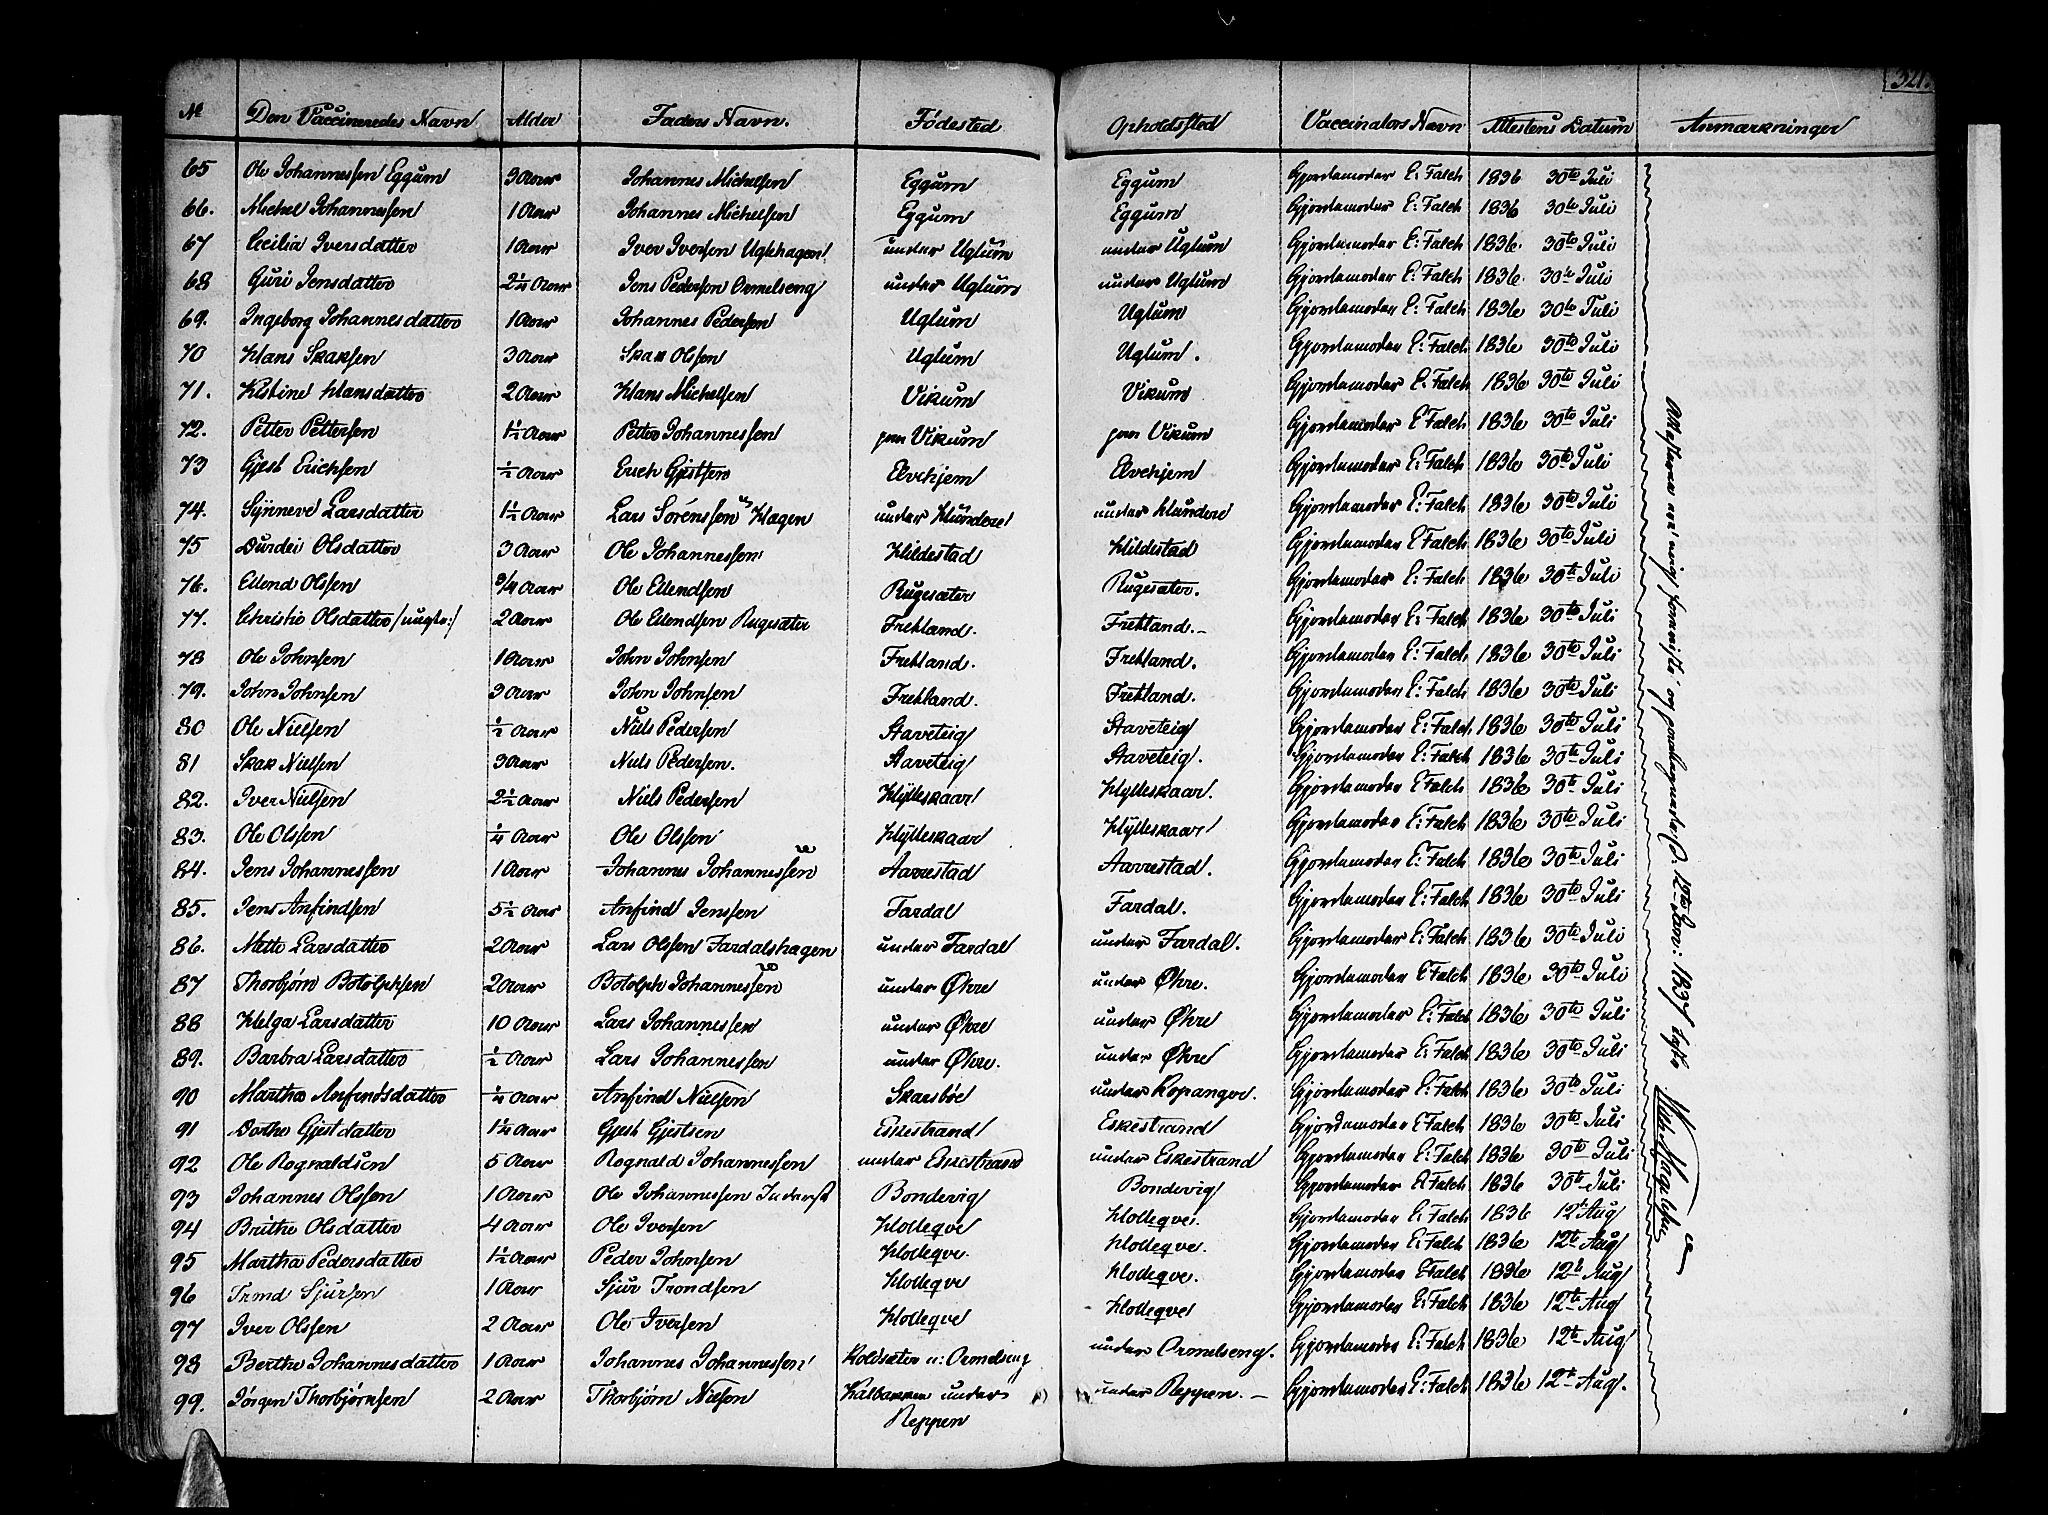 321.
№ Den Vaccineredes Navn Alder Faders Navn. Fødested Opholdssted Vaccinators Navn Attestens Datum Anmærkninger
65 Ole Johannessen Eggum 3 Aar Johannes Michelsen Eggum Eggum Gjordemoder E: Falch 1836 30te Juli
66. Michel Johannessen 1 Aar Johannes Michelsen Eggum Eggum Gjordemoder E: Falch 1836 30te Juli
67 Cecilia Iversdatter 1 Aar Iver Iversen under Uglum under Uglum Gjordemoder E: Falch 1836. 30te Juli
68 Guri Jensdatter 2 1/4 Aar Jens Pedersen Ormelseng under Uglum under Uglum Gjordemoder E: Falch 1836. 30te Juli
69. Ingeborg Johannesdatter 1 Aar Johannes Pedersen Uglum Uglum Gjordemoder E: Falch 1836 30te Juli
70 Hans Skaksen 3 Aar Skak Olsen Uglum Uglum. Gjordemoder E: Falch 1836 30te Juli
71. Kistine Hansdatter 2 Aar Hans Michelsen Vikum Vikum Gjordemoder E: Falch 1836 30te Juli
72. Petter Pettersen 1 1/2 Aar Petter Johannessen Vikum Vikum Gjordemoder E: Falch 1836 30te Juli
73 Gjest Erichsen 1/2 Aar Erich Gjestsen Elvehjem Elvehjem Gjordemoder E: Falch 1836 30te Juli
74. Synneve Larsdatter 1 1/2 Aar Lars Sørenssen Hagen under Hundere under Hundere Gjordemoder E: Falch 1836 30te Juli
75 Durdei Olsdatter 3 Aar Ole Johannessen Hildestad Hildestad Gjordemoder E Falch 1836 30te Juli
76. Ellend Olssen 3/4 Aar Ole Ellendsen Rugesæter Rugesæter. Gjordemoder E: Falch 1836 30te Juli
77. Christie Olsdatter /: uægte :/ 2 Aar Ole Ellendsen Rugesæter Frekland. Frekland. – Gjordemoder E: Falch 1836 30te Juli
78 Ole Johnsen 1 Aar John Johnsen Frekland. Frekland. Gjordemoder E: Falch 1836 30te Juli
79. John Johnsen 3 Aar John Johnsen Frekland. Frekland. Gjordemoder E: Falch 1836 30te Juli
80 Ole Nielsen 1/2 Aar Niels Pedersen Staveteig Staveteig Gjordemoder E: Falch 1836 30te Juli
81 Skak Nielsen 3 Aar Niels Pedersen. Staveteig Staveteig. Gjordemoder E: Falch 1836 30te Juli
82. Iver Nielsen 2 1/2 Aar Niels Pedersen Hylleskaar Hylleskaar. Gjordemoder E Falch 1836 30te Juli
83. Ole Olssen 1/4 Aar Ole Olssen Hylleskaar Hylleskaar Gjordemoder E: Falch 1836 30te Juli
84. Jens Johannessen 1 Aar Johannes Johannessen Aarrestad Aarrestad. Gjordemoder E: Falch 1836 30te Juli
85. Jens Anfindsen 5 1/2 Aar Anfind Jenssen Fardal Fardal. Gjordemoder E: Falch 1836 30te Juli
86. Mette Larsdatter 2 Aar Lars Olssen Fardalshagen under Fardal under Fardal. Gjordemoder E: Falch 1836 30te Juli
87 Thorbjørn Botolphsen 2 Aar Botolph Johannessen under Øhre under Øhre. Gjordemoder E Falch 1836 30te Juli
88 Helga Larsdatter 10 Aar Lars Johannessen under Øhre under Øhre Gjordemoder E: Falch 1836 30te Juli
89. Barbra Larsdatter 1/2 Aar Lars Johannessen under Øhre. under Øhre Gjordemoder E: Falch 1836 30te Juli
90 Martha Anfindsdatter 1/4 Aar Anfind Nielsen Skarsbøe under Kopanger. Gjordemoder E: Falch 1836 30te Juli
91 Dorthe Gjestdatter 1 1/4 Aar Gjest Gjestsen Eskestrand Eskestrand Gjordemoder E Falch 1836 30te Juli
92 Ole Rognaldsen 5 Aar Rognald Johannessen under Eskestrand under Eskestrand Gjordemoder E: Falch 1836 30te Juli
93 Johannes Olssen 1 Aar Ole Johannessen Bondevig Bondevig Gjordemoder E Falch 1836 30te Juli
94 Brithe Olsdatter 4 Aar Ole Iversen Holleqve Holleqve. Gjordemoder E: Falch 1836 12te Aug
95 Martha Pedersdatter 1 1/2 Aar Peder Johnsen Holleqve. Holleqve. Gjordemoder E: Falch 1836 12te Aug
96 Sjursen 1 Aar Sjur Trondsen Holleqve Holleqve. Gjordemoder E Falch 1836 12te Aug
97 Iver Olssen 2 Aar Ole Iversen Holleqve Holleqve Gjordemoder E: Falch 1836 12te Aug
98 Berthe Johannesdatter 1 Aar Johannes Johannessen Koldsæter u: Ormelseng under Ormelseng. Gjordemoder E: Falch 1836 12te Aug
99. Jørgen Thorbjørnsen 2 Aar Thorbjørn Nielsen Kalbakken under under Reppen. – Gjordemoder E: Falch 1836 12te Aug.
Reppen
Attesterne ere mig foreviste og 12te Jan: 1837